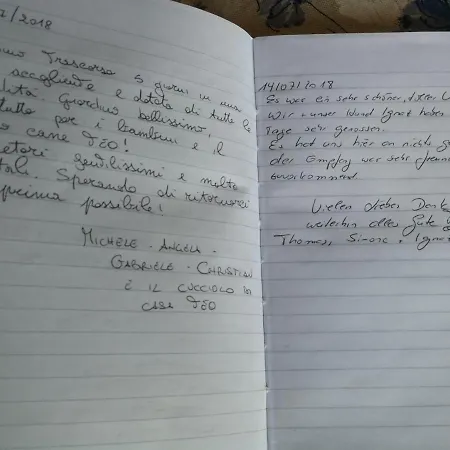 7/2018
Trascorso 5 giorni in una
accogliente e dotata di tutte le
Giardino bellissimo,
tutto per i bambini e il
cane TÉO!
gentilissimi e molto
Sperando di ritornarci
prima possibile!
MICHELE - ANGELA -
GABRIELE - CHRISTIAN
E IL CUCCIOLO DI
CASA TÉO
14/07/2018
Es war ein sehr schöner,
Wir + unser Hund Ignat haben
Tage sehr genossen.
Es hat uns hier an nichts
der Empfang war sehr
zuvorkommend.
Vielen lieben Dank
weiterhin alles Gute
Thomas, Simone + Ignat